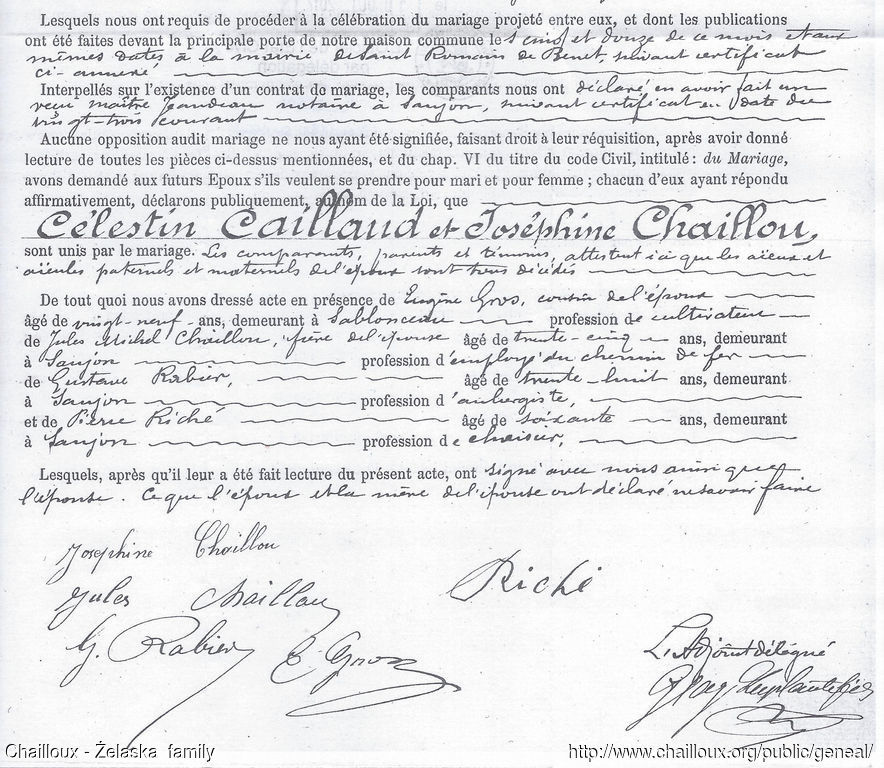 Lesquels nous ont requis de procéder à la célébration du mariage projeté entre eux, et dont les publications
ont été faites devant la principale porte de notre maison commune les cinq et douze de ce mois et aux
mêmes dates à la mairie de Saint Romain de Benet, suivant certificat
ci-annexé
Interpellés sur l'existence d'un contrat de mariage, les comparants nous ont déclaré en avoir fait un
reçu maître notaire à Saujon, suivant certificat en date du
vingt-trois courant
Aucune opposition audit mariage ne nous ayant été signifiée, faisant droit à leur réquisition, après avoir donné
lecture de toutes les pièces ci-dessus mentionnées, et du chap. VI du titre du code Civil, intitulé : du Mariage,
avons demandé aux futurs Epoux s'ils veulent se prendre pour mari et pour femme ; chacun d'eux ayant répondu
affirmativement, déclarons publiquement, au nom de la Loi, que
Célestin Caillaud et Joséphine Chaillou,
sont unis par le mariage. Les comparants, parents et témoins, attestent ici que les aïeux et
aïeules paternels et maternels de l'époux sont tous décédés
De tout quoi nous avons dressé acte en présence de Eugène Gros, cousin de l'époux
âgé de vingt-neuf ans, demeurant à Sablonceau profession de cultivateur
de Jules Michel Chaillou, frère de l'épouse âgé de trente-cinq ans, demeurant
à Saujon profession d'employé du chemin de fer
de Gustave Rabier, âgé de trente-huit ans, demeurant
à Saujon profession d'aubergiste,
et de Pierre Riché âgé de soixante ans, demeurant
à Saujon profession de
Lesquels, après qu'il leur a été fait lecture du présent acte, ont signé avec nous ainsi que
l'épouse. Ce que l'époux et la mère de l'épouse ont déclaré ne savoir faire
Joséphine Chaillou
Jules Chaillou
Riché
G. Rabier
E. Gros
L'Adjoint délégué
Chailloux - Żelaska family
http://www.chailloux.org/public/geneal/